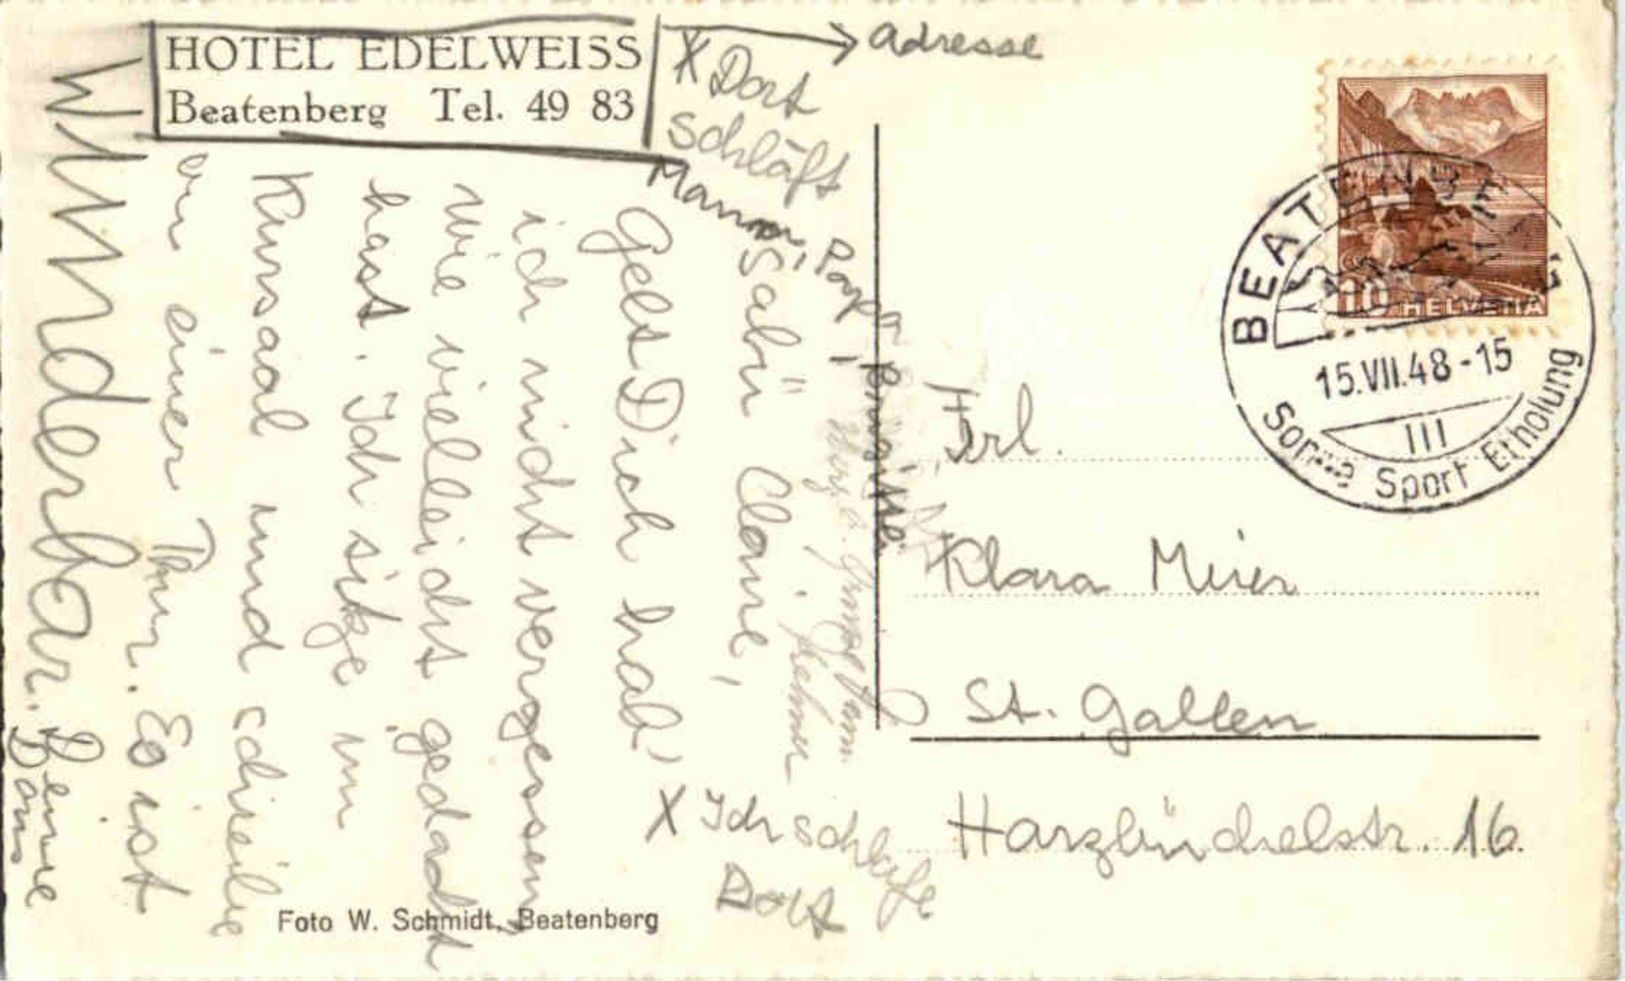 HOTEL EDELWEISS
Beatenberg Tel. 49 83
→ Adresse
X Dort
schläft
Mamma, Papa,
Salü Claire,
Gelt Dich hab'
ich nicht vergessen
wie vielleicht gedacht
hast. Ich sitze im
Kursaal und schreibe
an einer
Es ist
Wunderbar.
Deine
X Ich schlafe
Dort
Foto W. Schmidt, Beatenberg
HELVETIA
10
BEATENBERG
15.VII.48-15
III
Sonne Sport Erholung
Frl.
Klara Meier
St. Gallen
Harzbüchelstr. 16.